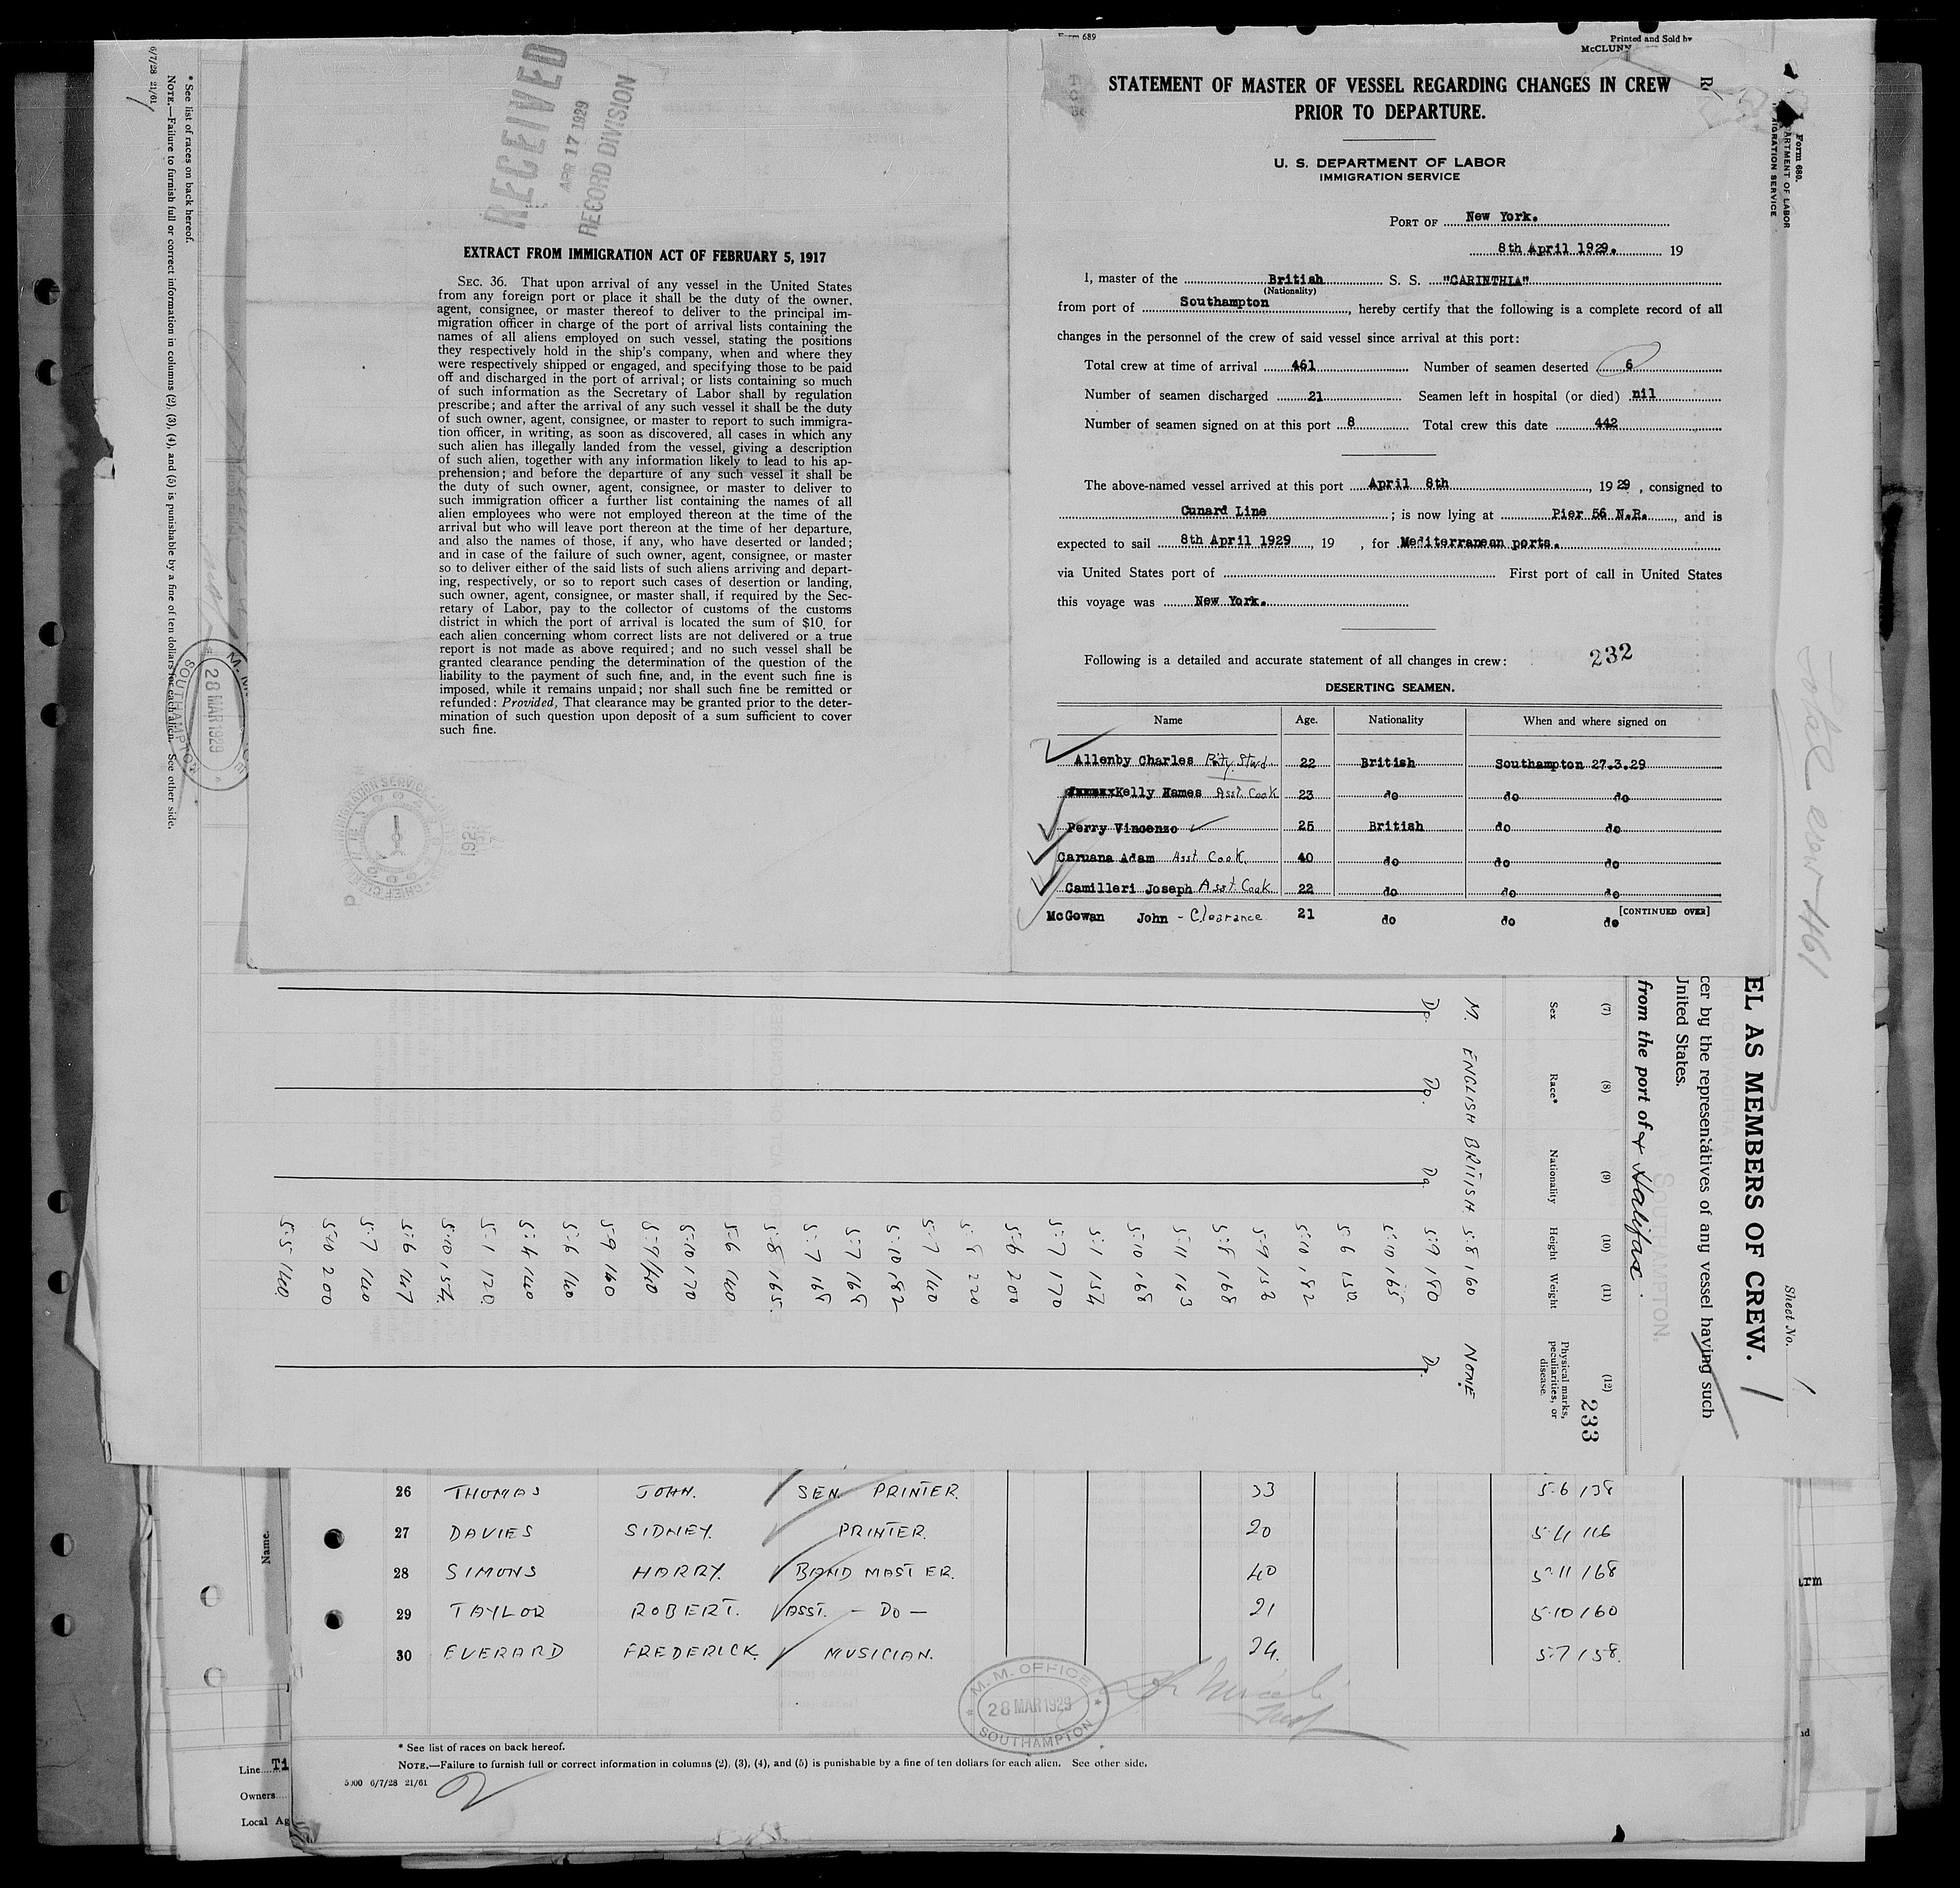 RECEIVED
APR 17 1929
RECORD DIVISION
EXTRACT FROM IMMIGRATION ACT OF FEBRUARY 5, 1917
SEC. 36. That upon arrival of any vessel in the United States
from any foreign port or place it shall be the duty of the owner,
agent, consignee, or master thereof to deliver to the principal im-
migration officer in charge of the port of arrival lists containing the
names of all aliens employed on such vessel, stating the positions
they respectively hold in the ship's company, when and where they
were respectively shipped or engaged, and specifying those to be paid
off and discharged in the port of arrival; or lists containing so much
of such information as the Secretary of Labor shall by regulation
prescribe; and after the arrival of any such vessel it shall be the duty
of such owner, agent, consignee, or master to report to such immigra-
tion officer, in writing, as soon as discovered, all cases in which any
such alien has illegally landed from the vessel, giving a description
of such alien, together with any information likely to lead to his ap-
prehension; and before the departure of any such vessel it shall be
the duty of such owner, agent, consignee, or master to deliver to
such immigration officer a further list containing the names of all
alien employees who were not employed thereon at the time of the
arrival but who will leave port thereon at the time of her departure,
and also the names of those, if any, who have deserted or landed;
and in case of the failure of such owner, agent, consignee, or master
so to deliver either of the said lists of such aliens arriving and depart-
ing, respectively, or so to report such cases of desertion or landing,
such owner, agent, consignee, or master shall, if required by the Sec-
retary of Labor, pay to the collector of customs of the customs
district in which the port of arrival is located the sum of $10 for
each alien concerning whom correct lists are not delivered or a true
report is not made as above required; and no such vessel shall be
granted clearance pending the determination of the question of the
liability to the payment of such fine, and, in the event such fine is
imposed, while it remains unpaid; nor shall such fine be remitted or
refunded: Provided, That clearance may be granted prior to the deter-
mination of such question upon deposit of a sum sufficient to cover
such fine.
Form 689
Printed and Sold by
McCLUNN
STATEMENT OF MASTER OF VESSEL REGARDING CHANGES IN CREW
PRIOR TO DEPARTURE.
U. S. DEPARTMENT OF LABOR
IMMIGRATION SERVICE
PORT OF New York.
8th April 1929. 19
I, master of the British S. S. "CARINTHIA"
(Nationality)
from port of Southampton, hereby certify that the following is a complete record of all
changes in the personnel of the crew of said vessel since arrival at this port:
Total crew at time of arrival 461 Number of seamen deserted 6
Number of seamen discharged 21 Seamen left in hospital (or died) nil
Number of seamen signed on at this port 8 Total crew this date 442
The above-named vessel arrived at this port April 8th, 1929, consigned to
Cunard Line; is now lying at Pier 56 N.R., and is
expected to sail 8th April 1929, 19 , for Mediterranean ports.
via United States port of First port of call in United States
this voyage was New York.
Following is a detailed and accurate statement of all changes in crew: 232
DESERTING SEAMEN.
Name Age. Nationality When and where signed on
Allenby Charles 22 British Southampton 27.3.29
Kelly Hames Asst. Cook 23 do do do
Perry Vincenzo 25 British do do
Caruana Adam Asst Cook 40 do do do
Camilleri Joseph Asst Cook 22 do do do
McGowan John - Clearance 21 do do do
[CONTINUED OVER]
Form 680.
6/7/28 21/61
* See list of races on back hereof.
NOTE.—Failure to furnish full or correct information in columns (2), (3), (4), and (5) is punishable by a fine of ten dollars for each alien. See other side.
28 MAR 1929
SOUTHAMPTON
Total crew 461
Sheet No. 1
EL AS MEMBERS OF CREW.
cer by the representatives of any vessel having such
United States.
from the port of & Halifax.
(7) (8) (9) (10) (11) (12)
Sex Race* Nationality Height Weight Physical marks, peculiarities, or disease.
233
M. ENGLISH BRITISH. 5.8 160 NONE
Do. Do. Do. 5.9 180 Do.
5.10 165
5.6 150
5.10 182
5.9 156
5.8 168
5.11 163
5.10 168
5.1 154
5.7 170
5.6 200
5.8 220
5.7 140
5.10 182
5.7 168
5.7 168
5.8 165
5.6 140
5.10 170
5.9 140
5.9 160
5.6 140
5.4 140
5.1 120
5.10 154
5.6 147
5.7 140
5.10 200
5.5 140
26 THOMAS JOHN. SEN PRINTER. 33 5.6 138
27 DAVIES SIDNEY. PRINTER. 20 5.4 116
28 SIMONS HARRY. BAND MASTER. 40 5.11 168
29 TAYLOR ROBERT. ASST. — DO — 21 5.10 160
30 EVERARD FREDERICK. MUSICIAN. 24. 5.7 158.
M.M. OFFICE
28 MAR 1929
SOUTHAMPTON
* See list of races on back hereof.
NOTE.—Failure to furnish full or correct information in columns (2), (3), (4), and (5) is punishable by a fine of ten dollars for each alien. See other side.
5000 6/7/28 21/61
2
Name.
Line Ti
Owners
Local Ag